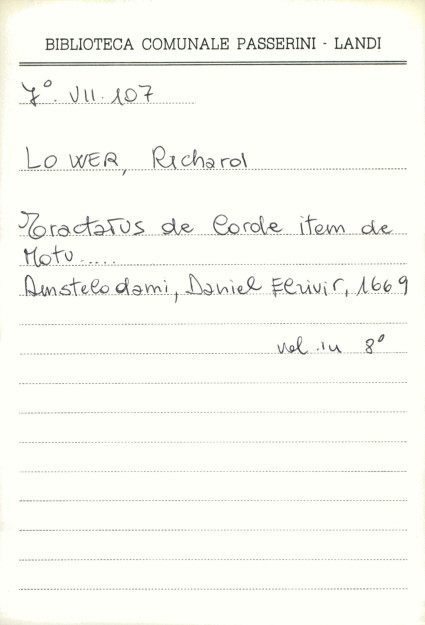 BIBLIOTECA COMUNALE PASSERINI - LANDI
Yº. VII. 107
LOWER, Richard
Tractatus de Corde item de
Motu.....
Amstelodami, Daniel Elzivir, 1669
vol. in 8º